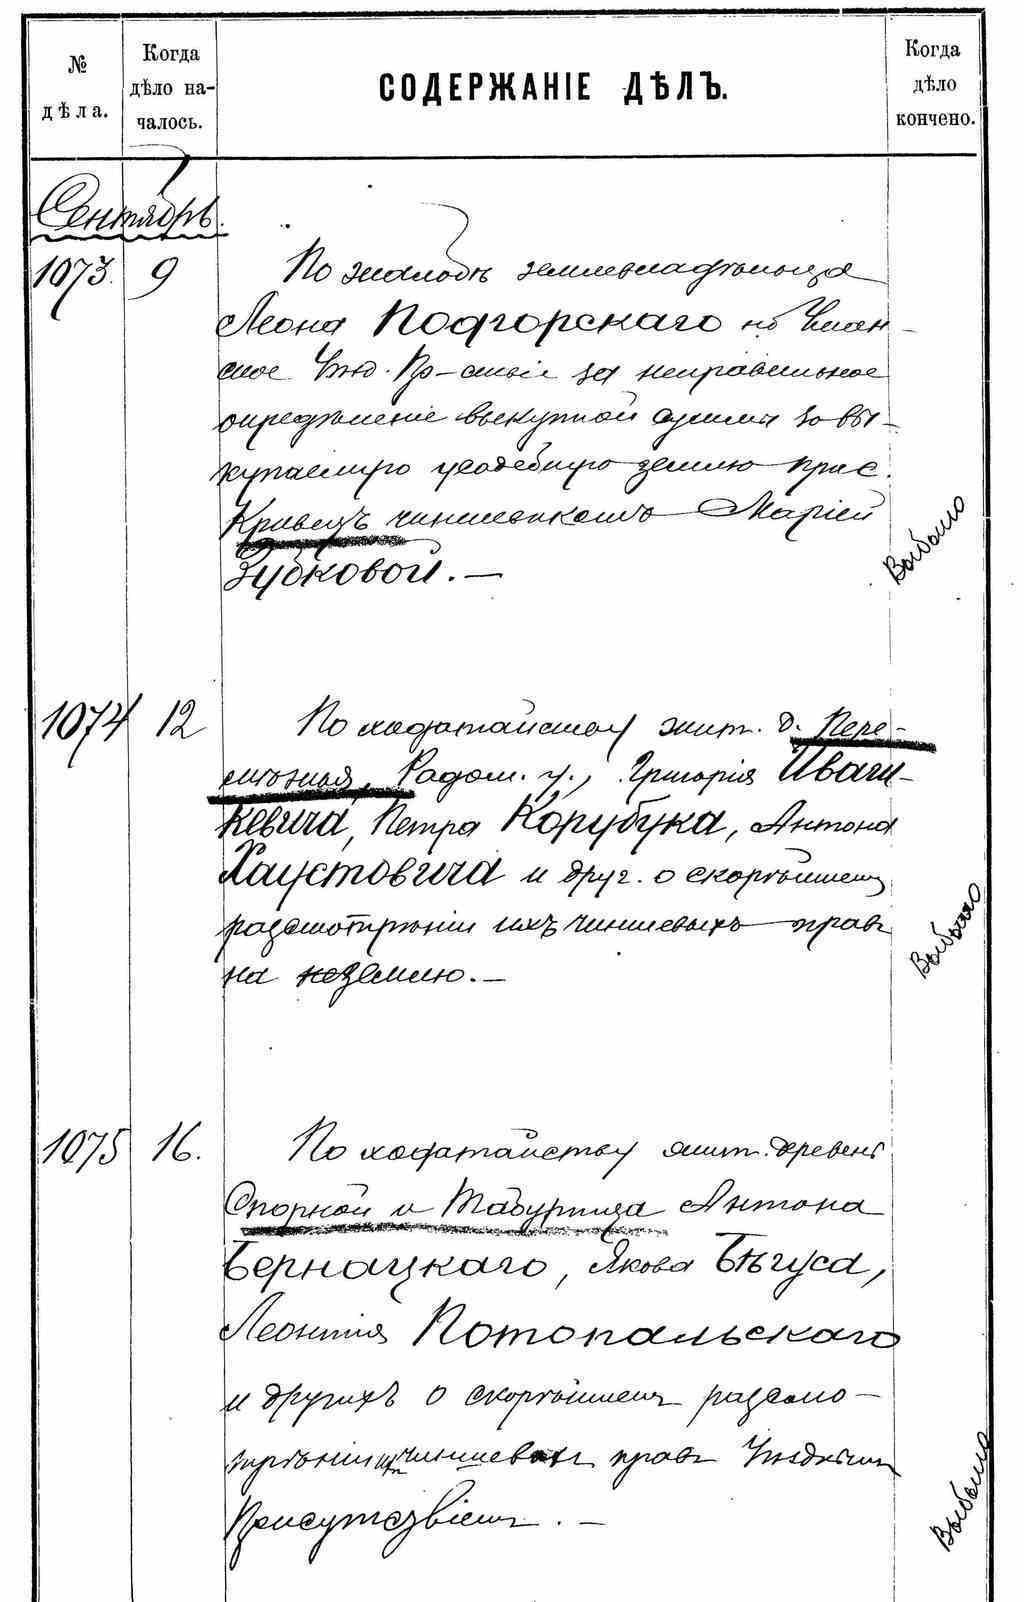 № дѣла.
Когда дѣло на-
чалось.
СОДЕРЖАНІЕ ДѢЛЪ.
Когда дѣло кончено.
Сентябрь.
1073. 9 По жалобѣ землевладѣльца
Леона Подгорскаго на
за неправильное
опредѣленіе выкупной суммы за вы-
купаемую усадебную землю при с.
Кривецъ чиншевикомъ Маріей
Зубковой. —
Выбыло
1074 12 По ходатайству жит. д. Пере-
Радом. у., Григорія Иваш-
кевича, Петра Корубука, Антона
Хаустовича и друг. о скорѣйшемъ
разсмотрѣніи ихъ чиншевыхъ правъ
на землю. —
Выбыло
1075 16. По ходатайству жит. деревень
Спорной и Антона
Бернацкаго, Якова Бѣгуса,
Леонтія Потопальскаго
и другихъ о скорѣйшемъ разсмо-
трѣніи ихъ чиншевыхъ правъ Уѣзднымъ
Присутствіемъ. —
Выбыло